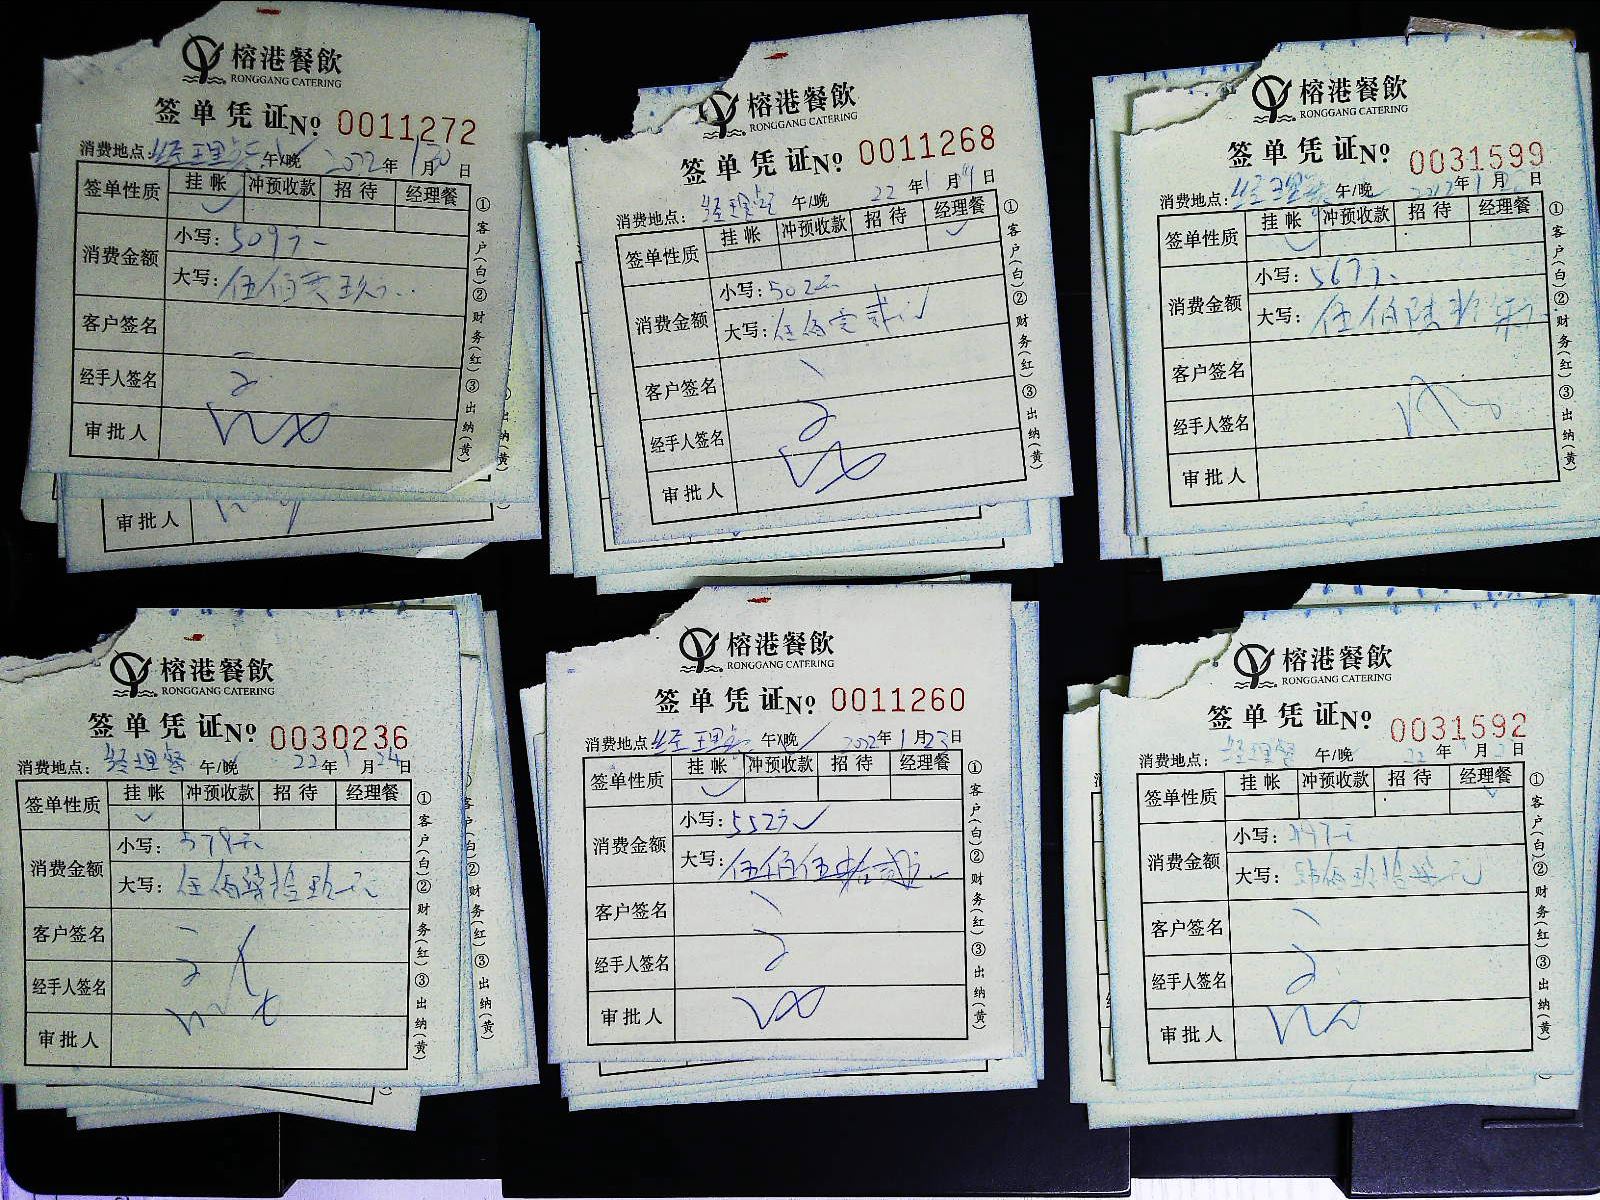 榕港餐飲
RONGGANG CATERING
签单凭证№ 0011272
消费地点: 经理餐 午/晚 2022年1月30日
签单性质 挂帐 冲预收款 招待 经理餐
消费金额
小写: 509元
大写: 伍佰零玖元
客户签名
经手人签名
审批人
①客户(白)②财务(红)③出纳(黄)
审批人
榕港餐飲
RONGGANG CATERING
签单凭证№ 0011268
消费地点: 经理餐 午/晚 22年1月9日
签单性质 挂帐 冲预收款 招待 经理餐
消费金额
小写: 502元
大写: 伍佰零贰元
客户签名
经手人签名
审批人
①客户(白)②财务(红)③出纳(黄)
榕港餐飲
RONGGANG CATERING
签单凭证№ 0031599
消费地点: 经理餐 午/晚 年1月 日
签单性质 挂帐 冲预收款 招待 经理餐
消费金额
小写: 567元
大写: 伍佰陆拾柒元
客户签名
经手人签名
审批人
①客户(白)②财务(红)③出纳(黄)
榕港餐飲
RONGGANG CATERING
签单凭证№ 0030236
消费地点: 经理餐 午/晚 22年1月24日
签单性质 挂帐 冲预收款 招待 经理餐
消费金额
小写: 579元
大写: 伍佰柒拾玖元
客户签名
经手人签名
审批人
①客户(白)②财务(红)③出纳(黄)
榕港餐飲
RONGGANG CATERING
签单凭证№ 0011260
消费地点: 经理餐 午/晚 2022年1月23日
签单性质 挂帐 冲预收款 招待 经理餐
消费金额
小写: 552元
大写: 伍佰伍拾贰元
客户签名
经手人签名
审批人
①客户(白)②财务(红)③出纳(黄)
榕港餐飲
RONGGANG CATERING
签单凭证№ 0031592
消费地点: 经理餐 午/晚 22年 月 日
签单性质 挂帐 冲预收款 招待 经理餐
消费金额
小写:
大写: 佰玖拾柒元
客户签名
经手人签名
审批人
①客户(白)②财务(红)③出纳(黄)